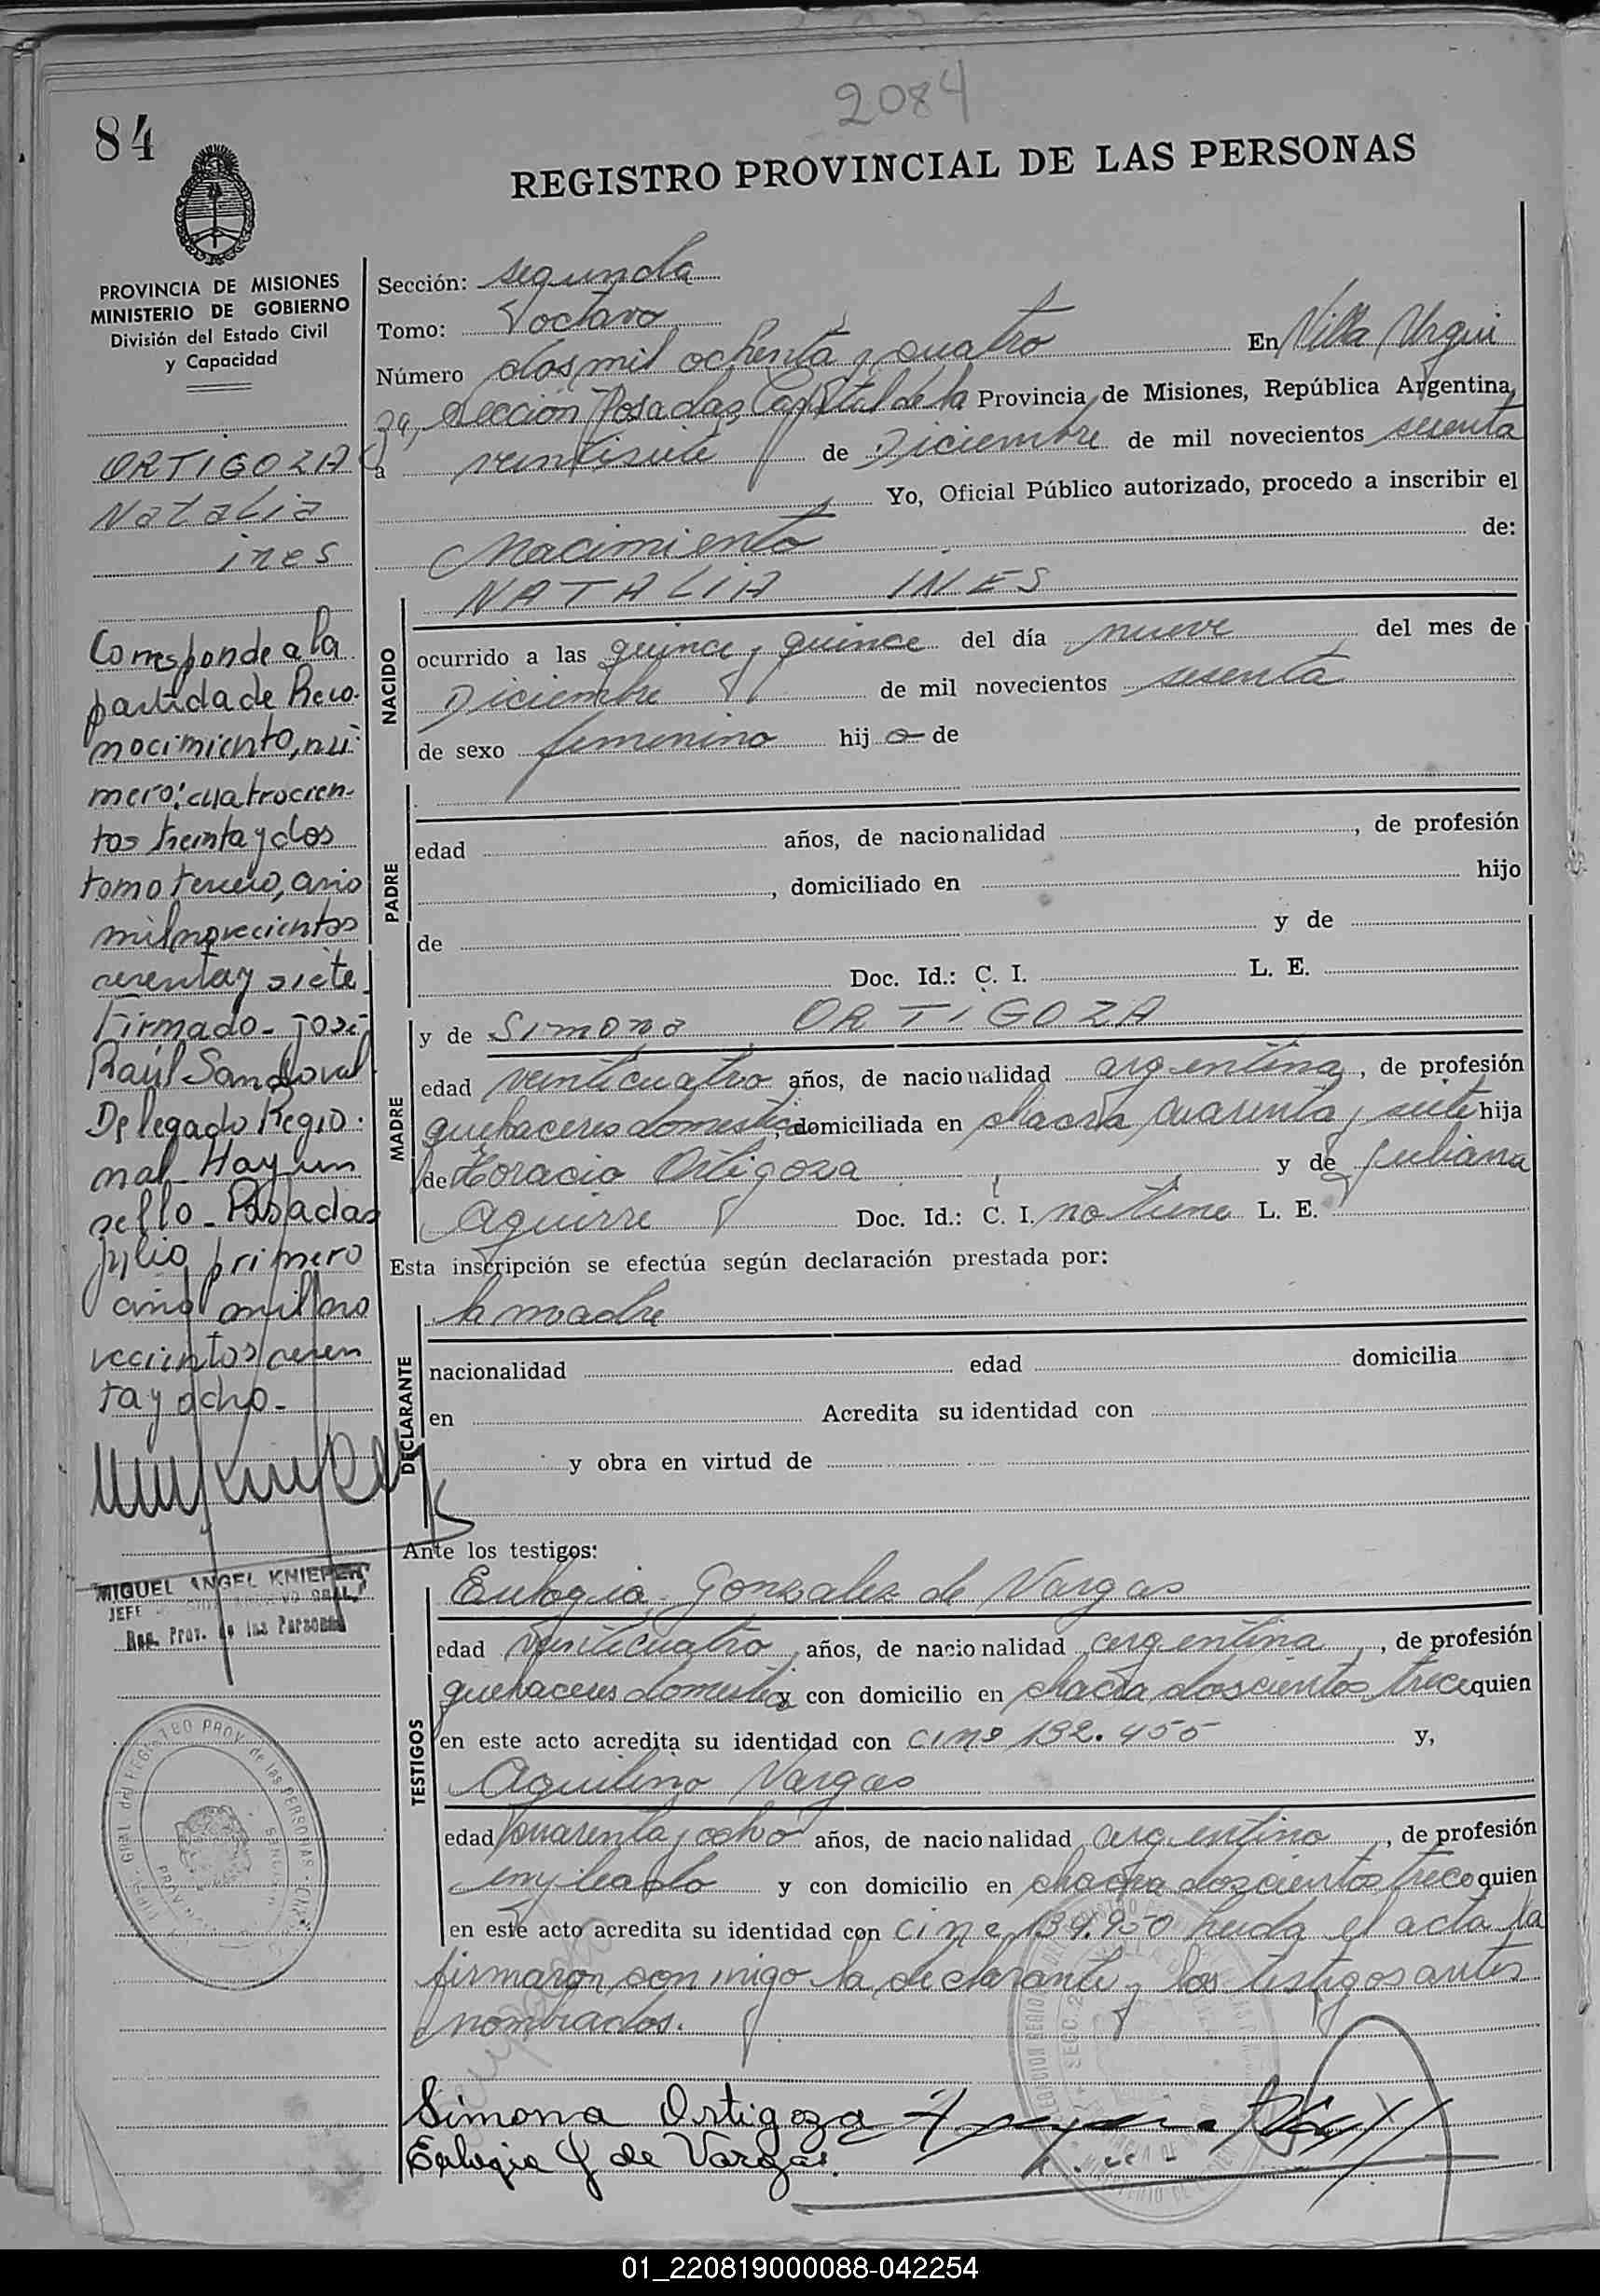 2084
84
REGISTRO PROVINCIAL DE LAS PERSONAS
PROVINCIA DE MISIONES
MINISTERIO DE GOBIERNO
División del Estado Civil
y Capacidad
ORTIGOZA
Natalia
ines
Corresponde a la
partida de Reco-
nocimiento, nú-
mero: cuatrocien-
tos treinta y dos
tomo tercero, año
mil novecientos
sesenta y siete.
Firmado - José
Raúl Sandoval
Delegado Regio-
nal - Hay un
sello - Posadas
Julio primero
año mil no
vecientos sesen
ta y ocho -
MIGUEL ANGEL KNIEPER
JEFE
Reg. Prov. de las Personas
Sección: segunda
Tomo: octavo
Número dos mil ochenta y cuatro En Villa Urqui
za, sección Posadas Capital de la Provincia de Misiones, República Argentina,
a veintisiete de Diciembre de mil novecientos sesenta
Yo, Oficial Público autorizado, procedo a inscribir el
Nacimiento de:
NATALIA INES
NACIDO
ocurrido a las quince y quince del día nueve del mes de
Diciembre de mil novecientos sesenta
de sexo femenino hij a de
PADRE
edad años, de nacionalidad , de profesión
, domiciliado en hijo
de y de
Doc. Id.: C. I. L. E.
MADRE
y de Simona ORTIGOZA
edad veinticuatro años, de nacionalidad argentina, de profesión
quehaceres domestico, domiciliada en chacra cuarenta y siete hija
de Horacio Ortigoza y de Juliana
Aguirre Doc. Id.: C. I. no tiene L. E.
Esta inscripción se efectúa según declaración prestada por:
DECLARANTE
la madre
nacionalidad edad domicilia
en Acredita su identidad con
y obra en virtud de
Ante los testigos:
TESTIGOS
Eulogia Gonzalez de Vargas
edad veinticuatro años, de nacionalidad argentina, de profesión
quehaceres domestico y con domicilio en chacra doscientos trece quien
en este acto acredita su identidad con ci nº 132.455 y,
Aquilino Vargas
edad cuarenta y ocho años, de nacionalidad argentino, de profesión
empleado y con domicilio en chacra doscientos trece quien
en este acto acredita su identidad con ci nº 139.950 leida el acta la
firmaron conmigo la declarante y los testigos antes
nombrados.
Simona Ortigoza
Eulogia G de Vargas.
01_220819000088-042254